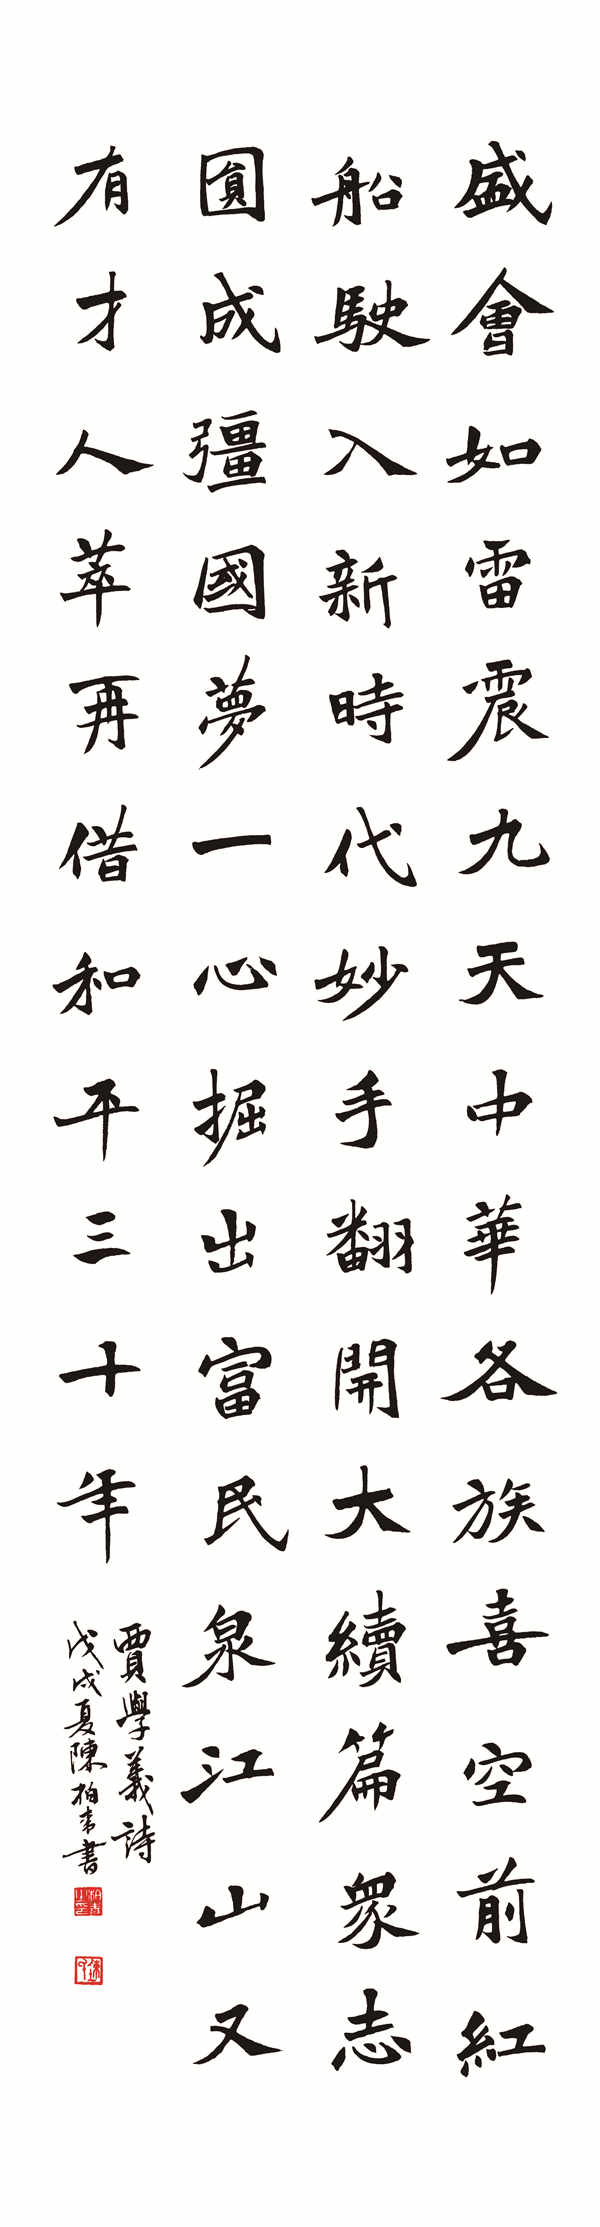 盛會如雷震九天中華各族喜空前紅
船駛入新時代妙手翻開大續篇眾志
圓成彊國夢一心掘出富民泉江山又
有才人萃再借和平三十年
賈學義詩
戊戌夏陳柏青書